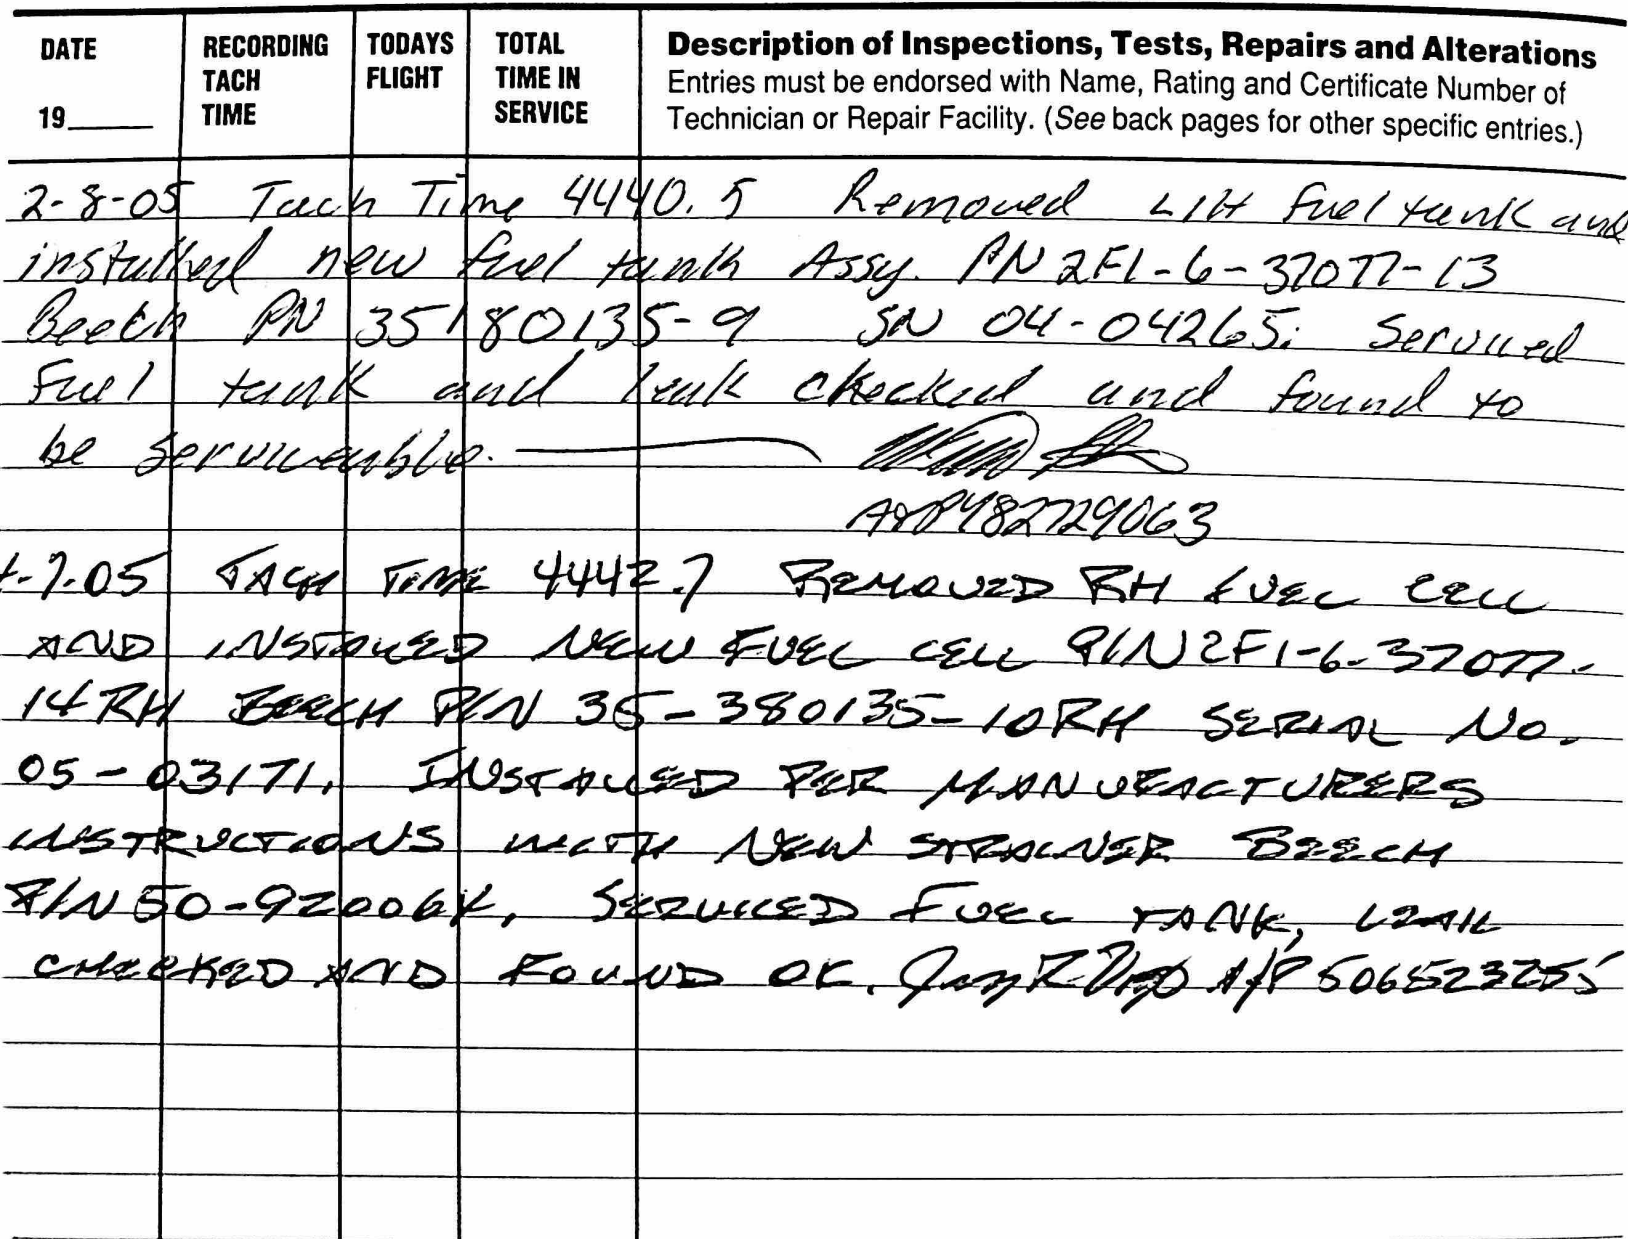 DATE RECORDING TODAYS TOTAL Description of Inspections, Tests, Repairs and Alterations
TACH FLIGHT TIME IN Entries must be endorsed with Name, Rating and Certificate Number of
19____ TIME SERVICE Technician or Repair Facility. (See back pages for other specific entries.)
2-8-05 Tach Time 4440.5 Removed L/H fuel tank and
installed new fuel tank Assy. PN 2F1-6-37077-13
Beech PN 35180135-9 SN 04-04265. Serviced
Fuel tank and leak checked and found to
be serviceable.
A&P 482729063
-7-05 TACH TIME 4442.7 REMOVED RH FUEL CELL
AND INSTALLED NEW FUEL CELL P/N 2F1-6-37077-
14RH BEECH P/N 35-380135-10RH SERIAL NO.
05-03171. INSTALLED PER MANUFACTURERS
INSTRUCTIONS WITH NEW STRAINER BEECH
P/N 50-920064, SERVICED FUEL TANK, LEAK
CHECKED AND FOUND OK. A/P 506523255